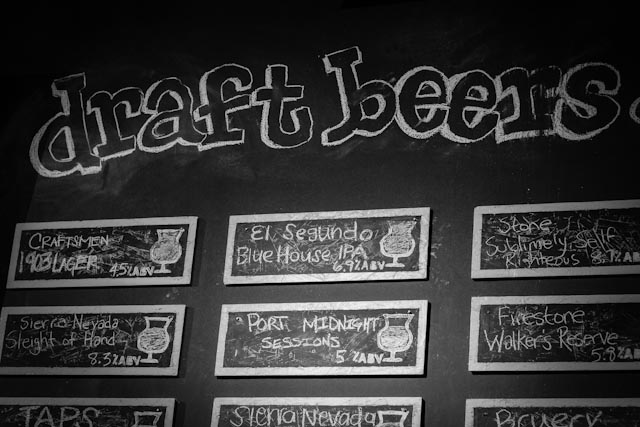 draft beers
CRAFTSMEN
1903 LAGER 4.5% ABV
El Segundo
Blue House IPA
6.9% ABV
Stone
Sublimely Self
Righteous 8.7% ABV
Sierra Nevada
Sleight of Hand
8.3% ABV
PORT MIDNIGHT
SESSIONS
5% ABV
Firestone
Walker's Reserve
5.8%
TAPS
Sierra Nevada
Bruery